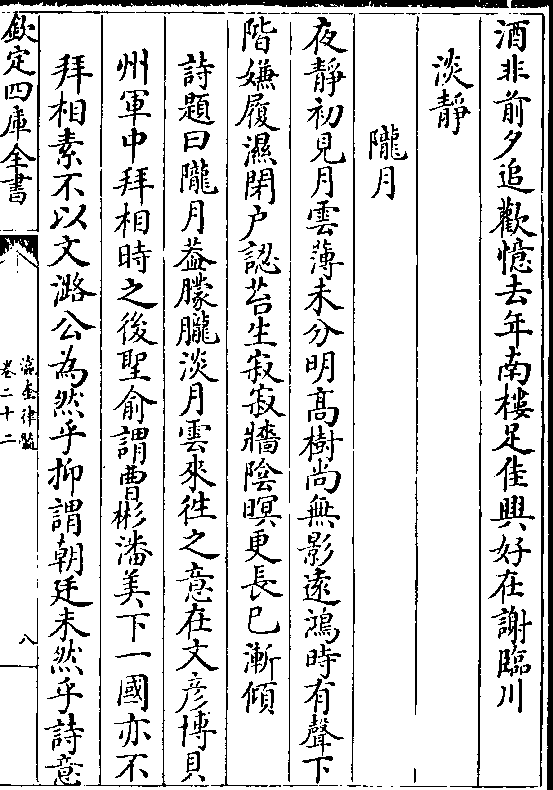 酒非前夕追歡憶去年南樓足佳興好在謝臨川
淡靜
隴月
夜靜初見月雲薄未分明髙樹尚無影遠鴻時有聲下
階嫌履濕閉户認苔生寂寂牆陰暝更長已漸傾
詩題曰隴月葢朦朧淡月雲來徃之意在文彦博貝
州軍中拜相時之後聖俞謂曹彬潘美下一國亦不
拜相素不以文潞公為然乎抑謂朝廷未然乎詩意
欽定四庫全書
瀛奎律髓
卷二十二
八